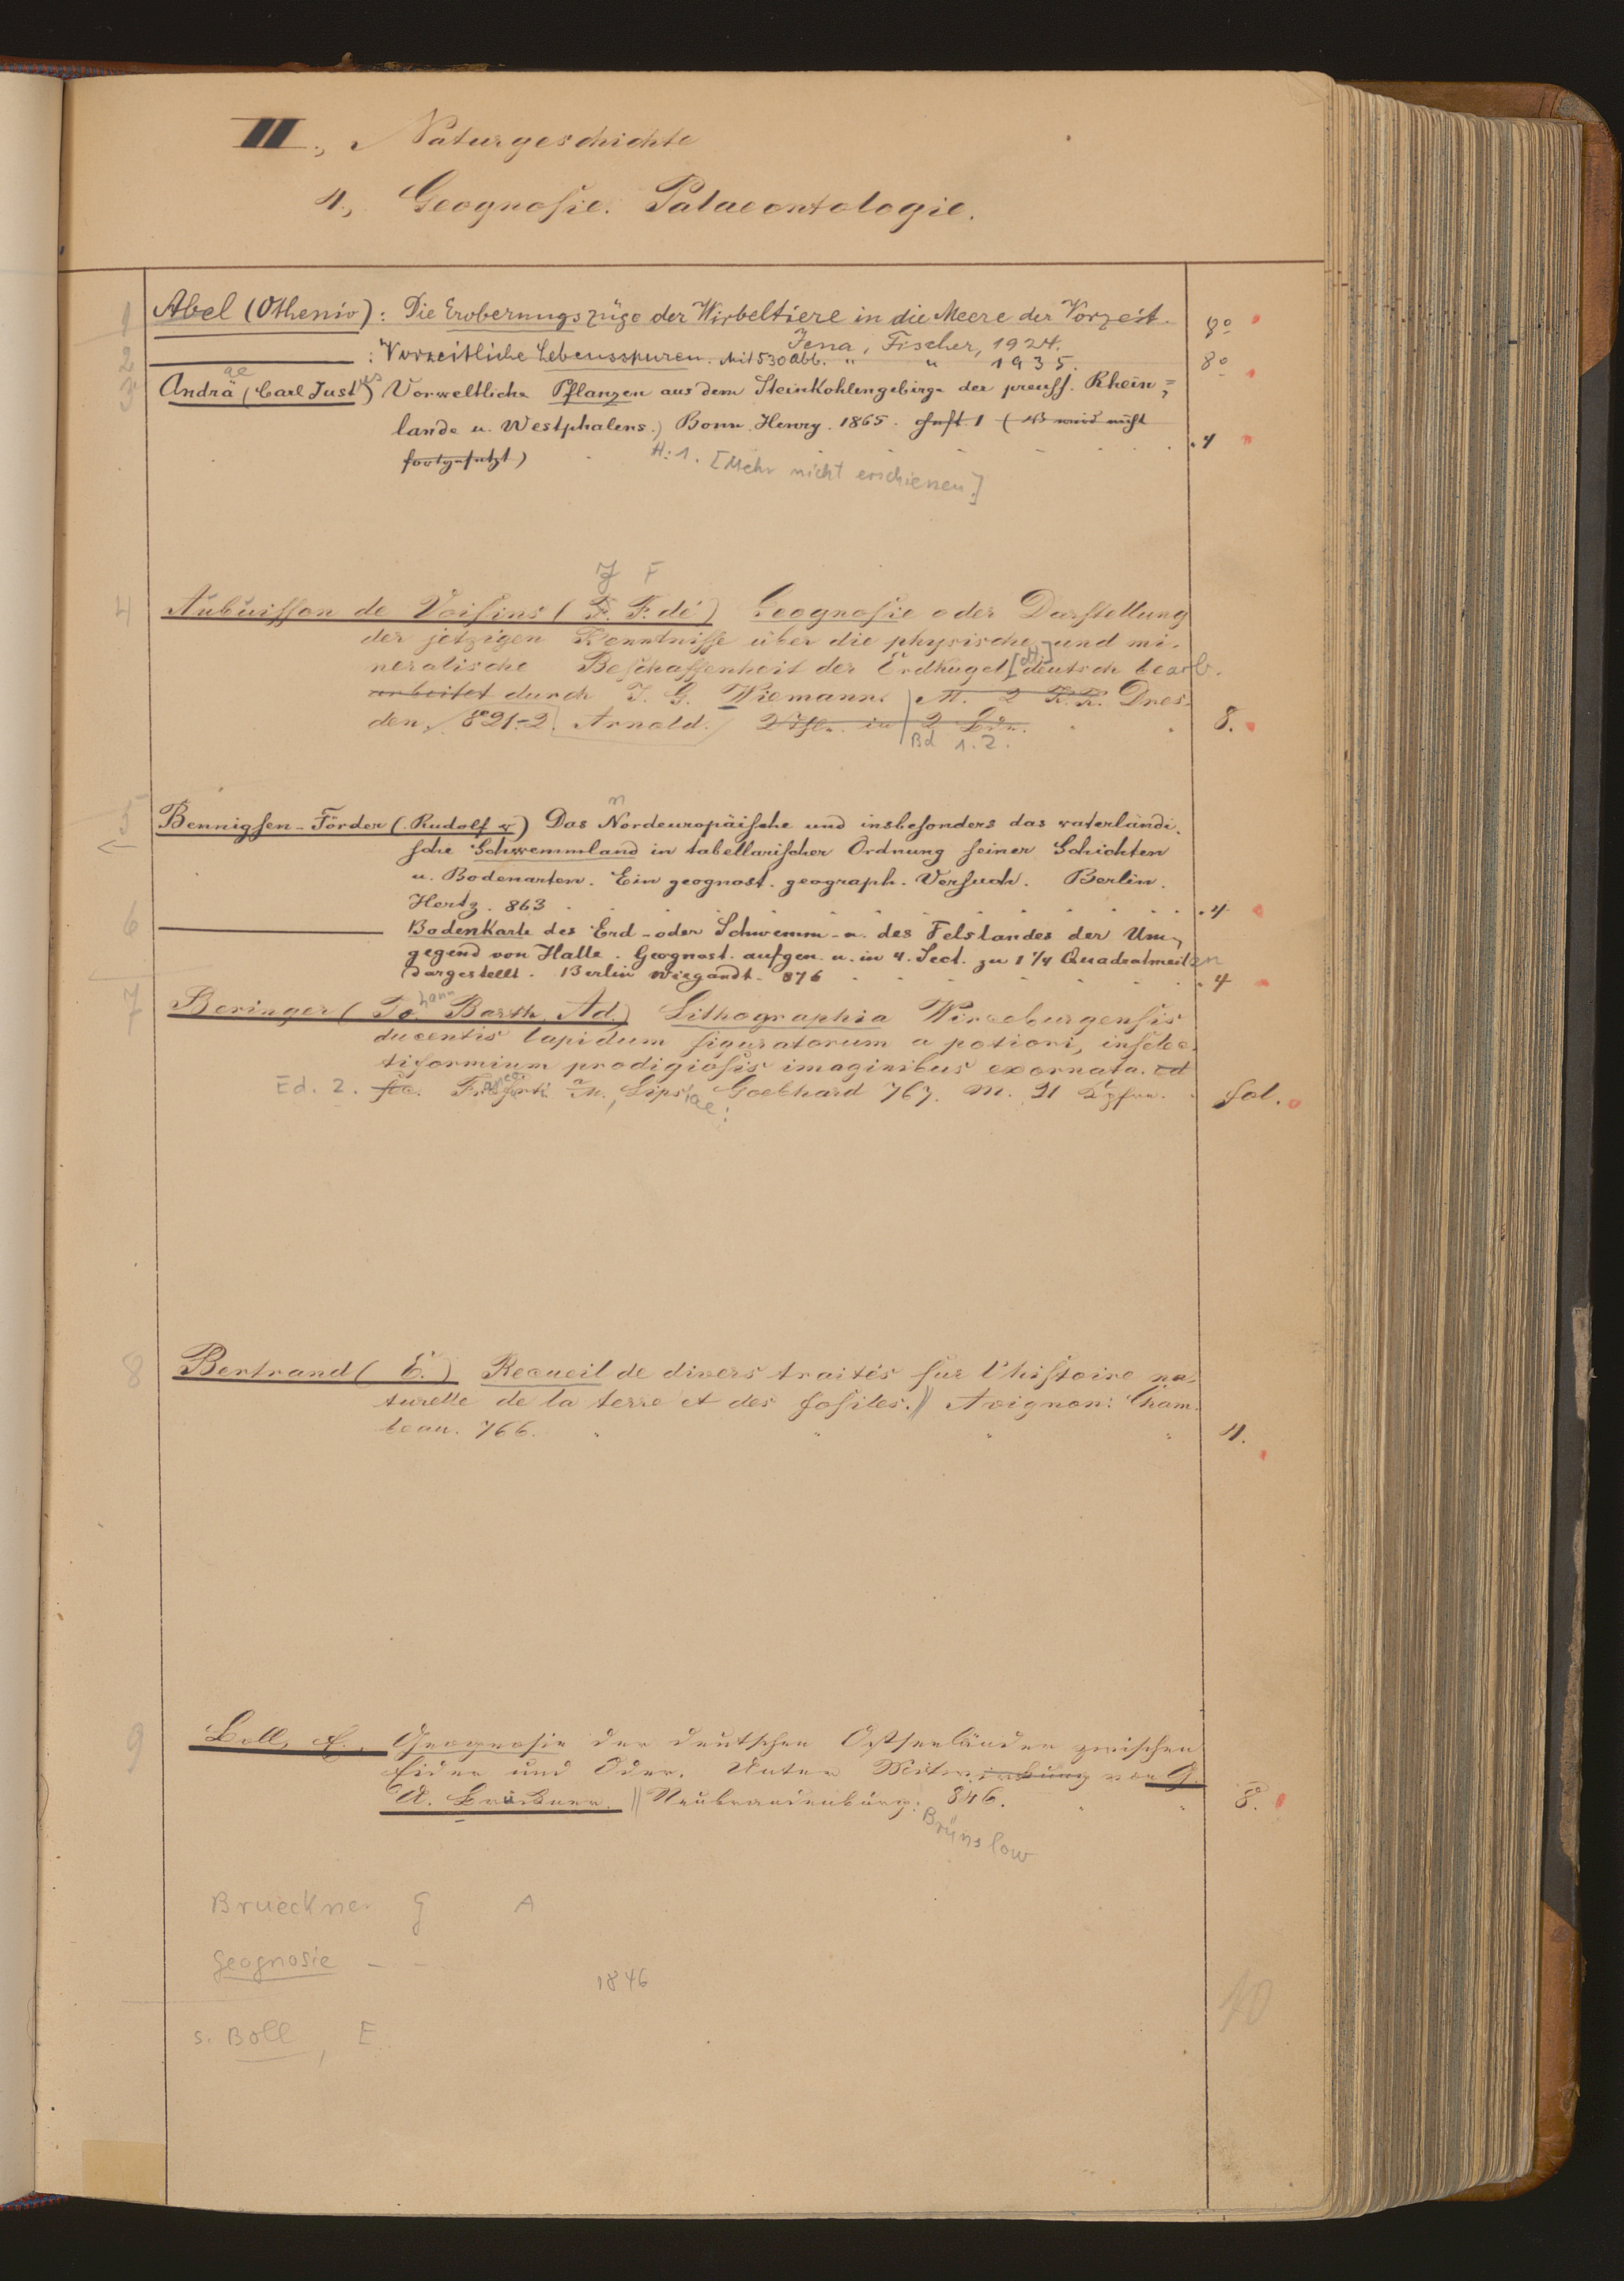 III., Naturgeschichte
4., Geognosie. Palaeontologie.
1 Abel (Othenio): Die Eroberungszüge der Wirbeltiere in die Meere der Vorzeit.
Jena, Fischer, 1924. 8°
2 : Vorzeitliche Lebensspuren. Mit 530 Abb. " " 1935. 8°
3 Andrä (Carl Just) Vorweltliche Pflanzen aus dem Steinkohlengebirge der preuss. Rhein=
ae us
lande u. Westphalens.) Bonn. Henry. 1865. Heft. 1 (NB wird nicht
fortgesetzt) H. 1. [Mehr nicht erschienen.] 4
J F
4 Aubuisson de Voisins (F. F. de) Geognosie oder Darstellung
der jetzigen Kenntnisse über die physische und mi-
neralische Beschaffenheit der Erdkugel [dt.] deutsch bearb.
arbeitet durch J. G. Wiemann. M. 2 K.K. Dres-
den, 821-2. Arnold. 2 Thle. in 2 Bdn. 8.
Bd 1. 2.
5 Bennigsen-Förder (Rudolf v) Das Nordeuropäische und insbesonders das vaterländi-
n
sche Schwemmland in tabellarischer Ordnung seiner Schichten
u. Bodenarten. Ein geognost. geograph. Versuch. Berlin.
Hertz. 863 4
6 Bodenkarte des Erd- oder Schwemm- u. des Felslandes der Um-
gegend von Halle. Geognost. aufgen. u. in 4. Sect. zu 1 1/4 Quadratmeilen
dargestellt. Berlin Wiegandt. 876 4
7 Beringer (Jo. Barth. Ad.) Lithographia Wirceburgensis
hann
ducentis lapidum figuratorum a potiori, insec-
tiformium prodigiosis imaginibus exornata. ed
Ed. 2. sec. Francofurti a M., Lipsiae: Goebhard 767. M. 21 Kpfrn. fol.
8 Bertrand (E.) Recueil de divers traités sur l'histoire na-
turelle de la terre et des fosiles. // Avignon: Cham-
beau. 766. 4.
9 Boll, E., Geognosie der deutschen Ostseeländer zwischen
Eider und Oder. Unter Mitwirkung von G.
A. Brückner. // Neubrandenburg: 846. 8°.
Brünslow
Brueckner G A
Geognosie - -
1846
s. Boll, E
10